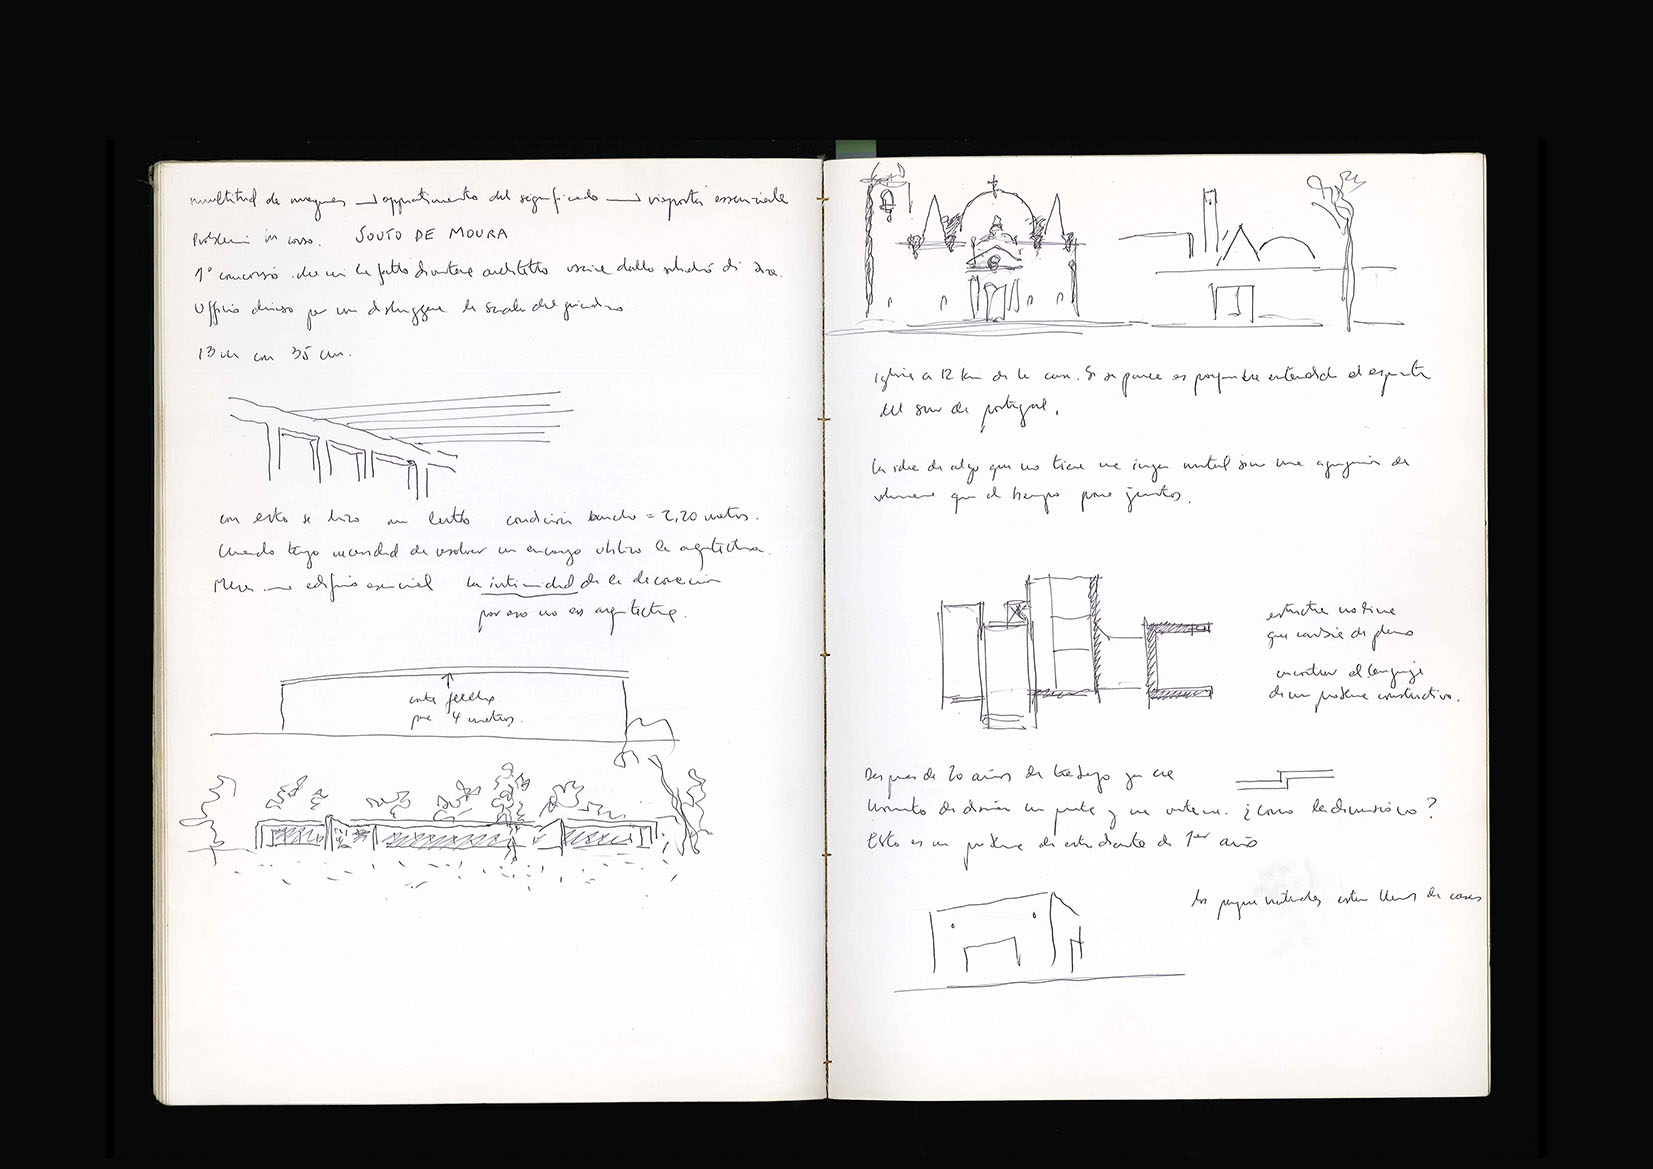 multitud de imagenes → del significado → risposta essenziale
Problemi in corso. SOUTO DE MOURA
1° concorso che mi ha fatto diventare architetto uscire dallo studio di
Ufficio diviso per non distruggere la scala del giardino
13 m con 35 cm.
con esto se hizo un condición = 2,20 metros.
Cuando tengo necesidad de resolver un encargo utilizo la arquitectura.
Mies → edificio esencial la intimidad de la decoración
por eso no es arquitectura.
4 metros.
iglesia a 12 km de la casa. Si se parece es porque he entendido el espíritu
del sur de portugal.
la idea de algo que no tiene una imagen unital sino una agregación de
volumenes que el tiempo pone juntos.
estructura
que cambia de plano
encontrar el lenguaje
de un problema constructivo.
Despues de 20 años de trabajo que
de diseñar una puerta y una ventana. ¿Como la dimensiono?
Esto es un problema de estudiante de 1er año
los parques naturales estan llenos de casas